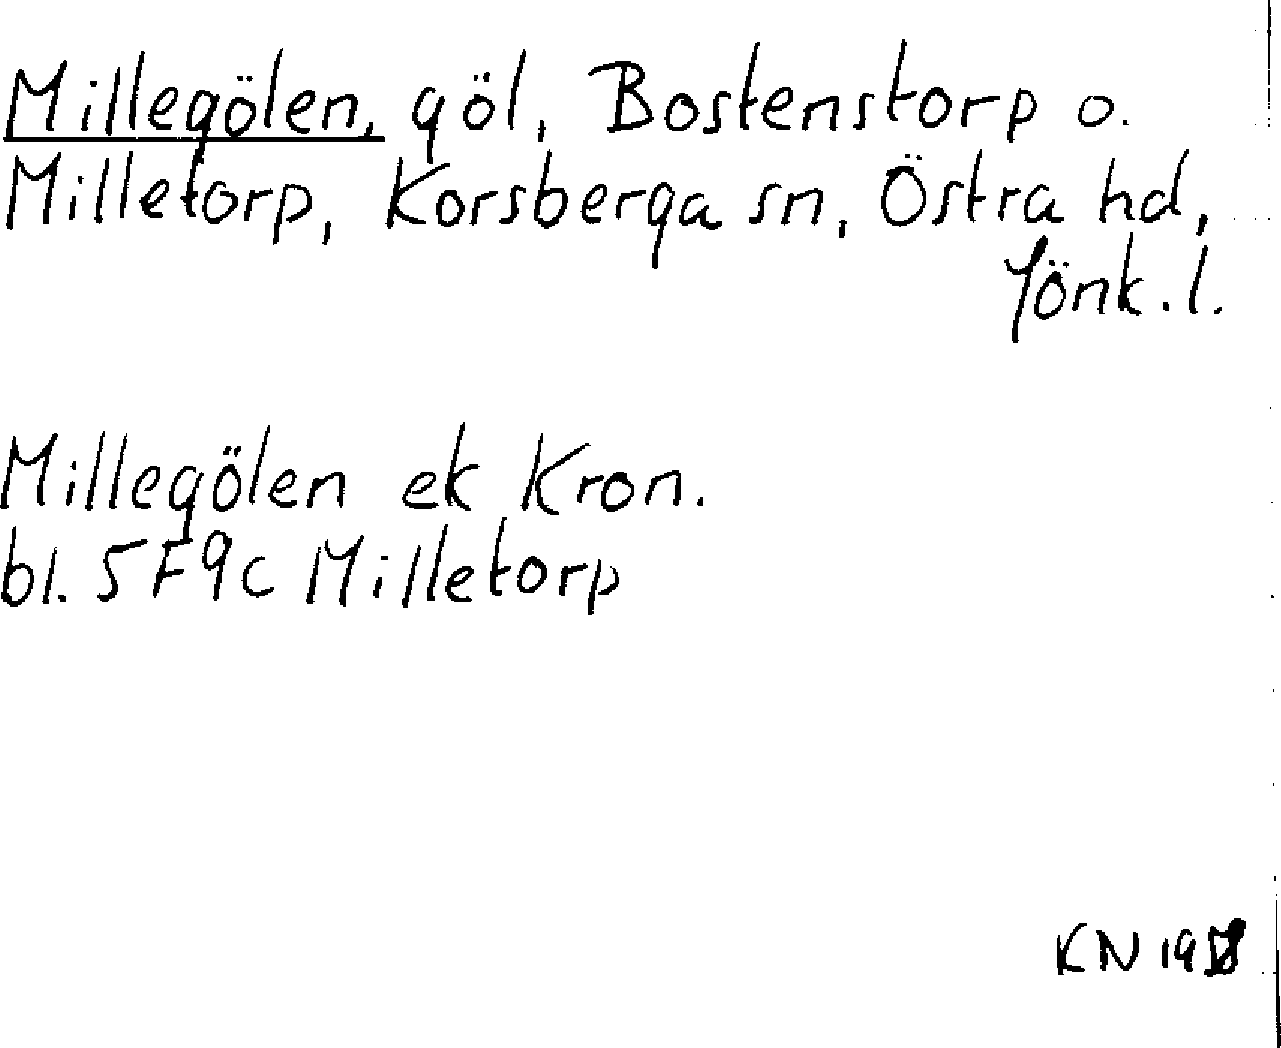 Millegölen, göl, Bostenstorp o.
Milletorp, Korsberga sn, Östra hd,
Jönk. l.
Millegölen ek Kron.
bl. 5F9c Milletorp
KN